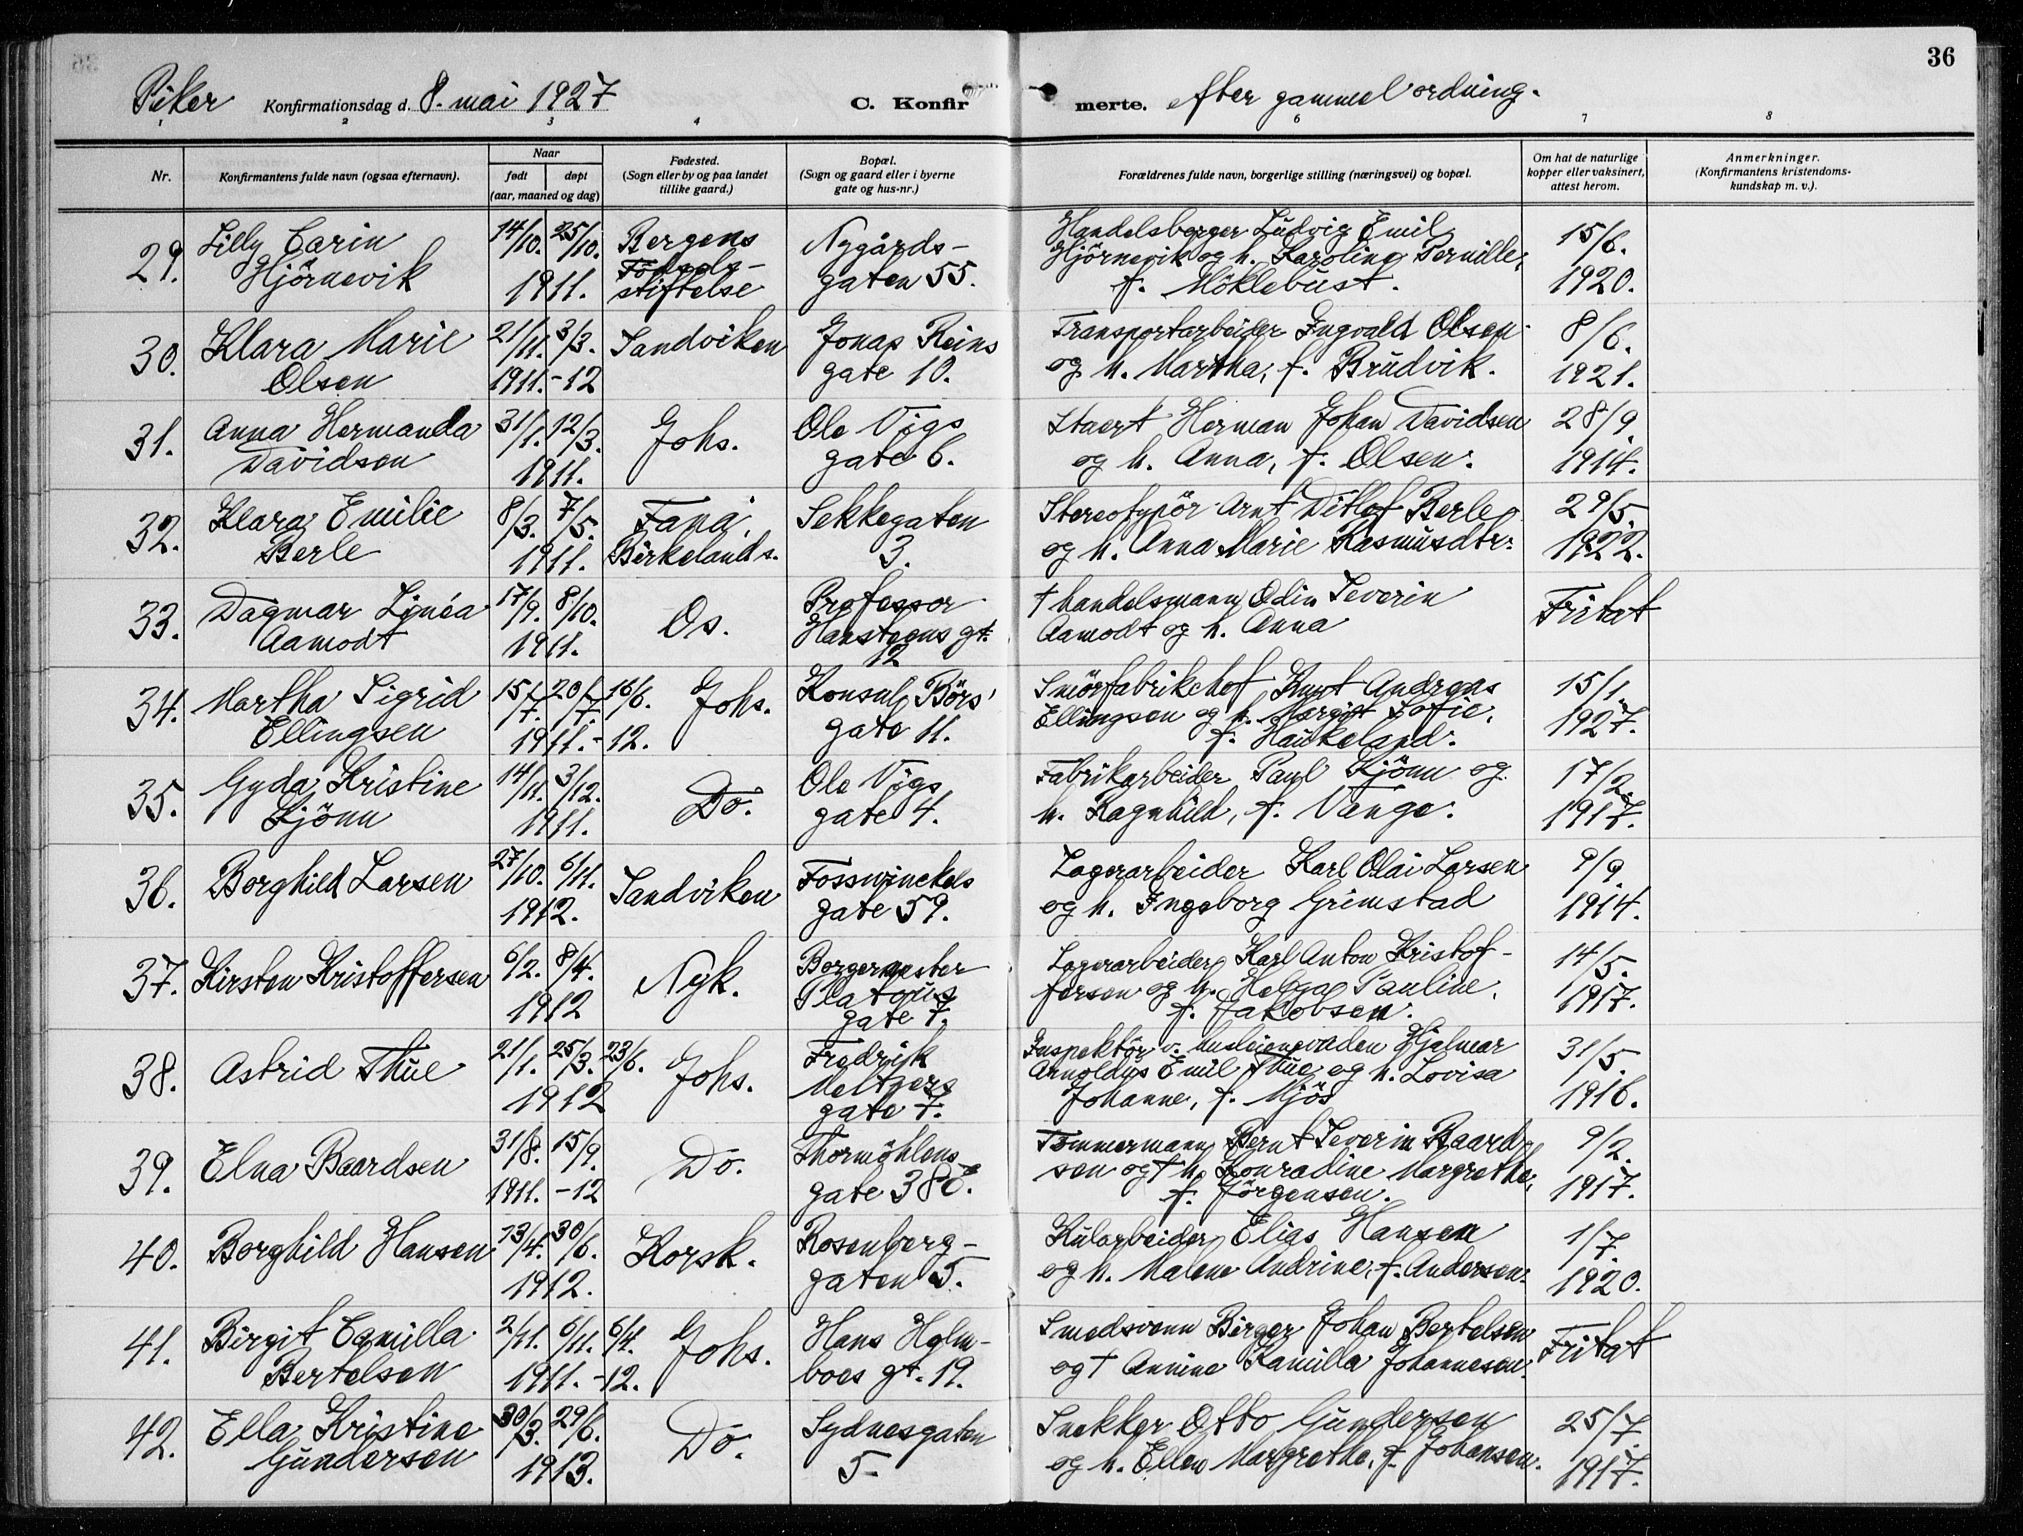 36
Piker Konfirmationsdag d. 8. mai 1927 C. Konfirmerte. efter gammel ordning.
1 2 3 4 6 7 8
Nr. Konfirmantens fulde navn (ogsaa efternavn). Naar født døpt (aar, maaned og dag) Fødested. (Sogn eller by og paa landet tillike gaard.) Bopæl. (Sogn og gaard eller i byerne gate og hus-nr.) Forældrenes fulde navn, borgerlige stilling (næringsvei) og bopæl. Om hat de naturlige kopper eller vaksinert, attest herom. Anmerkninger. (Konfirmantens kristendoms-kundskap m. v.).
29. Lilly Carin Hjörnevik 14/10. 25/10. 1911. Bergens Födselsstiftelse Nygårdsgaten 55. Handelsborger Ludvig Emil Hjörnevik og h. Karoline Pernille, f. Möklebust. 15/6. 1920.
30. Klara Marie Olsen 21/11. 3/3. 1911.-12 Sandviken Jonas Reins gate 10. Transportarbeider Ingvald Olsen og h. Martha, f. Brudvik. 8/6. 1921.
31. Anna Hermanda Davidsen 31/1. 12/3. 1911. Johs. Ole Vigs gate 6. Herman Johan Davidsen og h. Anna, f. Olsen. 28/9. 1914.
32. Klara Emilie Berle 8/3. 7/5. 1911. Fana, Birkelands. Sekkegaten 3. Stereotypör Arnt Ditlef Berle og h. Anna Marie Rasmusdtr. 29/5. 1922.
33. Dagmar Linéa Aamodt 17/9. 8/10. 1911. Os. Professor Hansteens gt. 12 † handelsmann Odin Severin Aamodt og h. Anna Fritat
34. Martha Sigrid Ellingsen 15/7. 20/7. 16/6. 1911.-12. Johs. Konsul Börs' gate 11. Smörfabrikchef Knut Andreas Ellingsen og h. Margit Sofie, f. Haukeland. 15/1. 1927.
35. Gyda Kristine Skjönn 14/11. 3/12. 1911. Do. Ole Vigs gate 4. Fabrikarbeider Paul Skjönn og h. Ragnhild, f. Vange. 17/2. 1917.
36. Borghild Larsen 27/10. 6/11. 1912. Sandviken Fosswinckels gate 59. Lagerarbeider Karl Olai Larsen og h. Ingeborg Grimstad 9/9 1914.
37. Kirsten Kristoffersen 6/2. 8/4. 1912 Nyk. Borgermester Platous gate 7. Lagerarbeider Karl Anton Kristoffersen og h. Helga Pauline, f. Jakobsen. 14/5. 1917.
38. Astrid Thue 21/1. 25/3. 23/6. 1912 Johs. Fredrik Meltzers gate 7. Inspektör v. husleienevnden Hjalmar Arnoldus Emil Thue og h. Lovisa Johanne, f. Mjös 31/5. 1916.
39. Elna Baardsen 31/8. 15/9. 1911.-12 Do. Thormöhlens gate 38 Tömmermann Bernt Severin Baardsen og † h. Konradine Margrethe, f. Jörgensen. 9/2. 1917.
40. Borghild Hansen 23/4. 30/6. 1912. Korsk. Rosenberggaten 5. Kularbeider Elias Hansen og h. Malene Andrine, f. Andersen. 1/7. 1920.
41. Birgit Camilla Bertelsen 2/11. 6/11. 6/4. 1911.-12. Johs. Hans Holmboes gt. 19. Smedsvenn Birger Johan Bertelsen og † Annine Kamilla Johannesen. Fritat
42. Ella Kristine Gundersen 30/3. 29/6. 1913. Do. Sydnesgaten 5 Snekker Otto Gundersen og h. Ellen Margrethe, f. Johansen. 25/7. 1917.